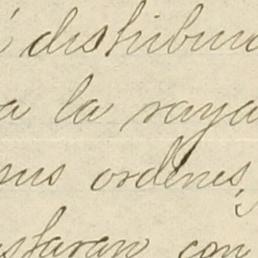 i distribu
a la raya
sus ordenes,
staran con